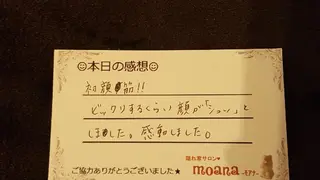 ☺本日の感想☺
初顔筋!!
ビックリするくらい顔が「シュッ」と
しました。感動しました。
隠れ家サロン♥
ご協力ありがとうございました★
moana
-モアナ-